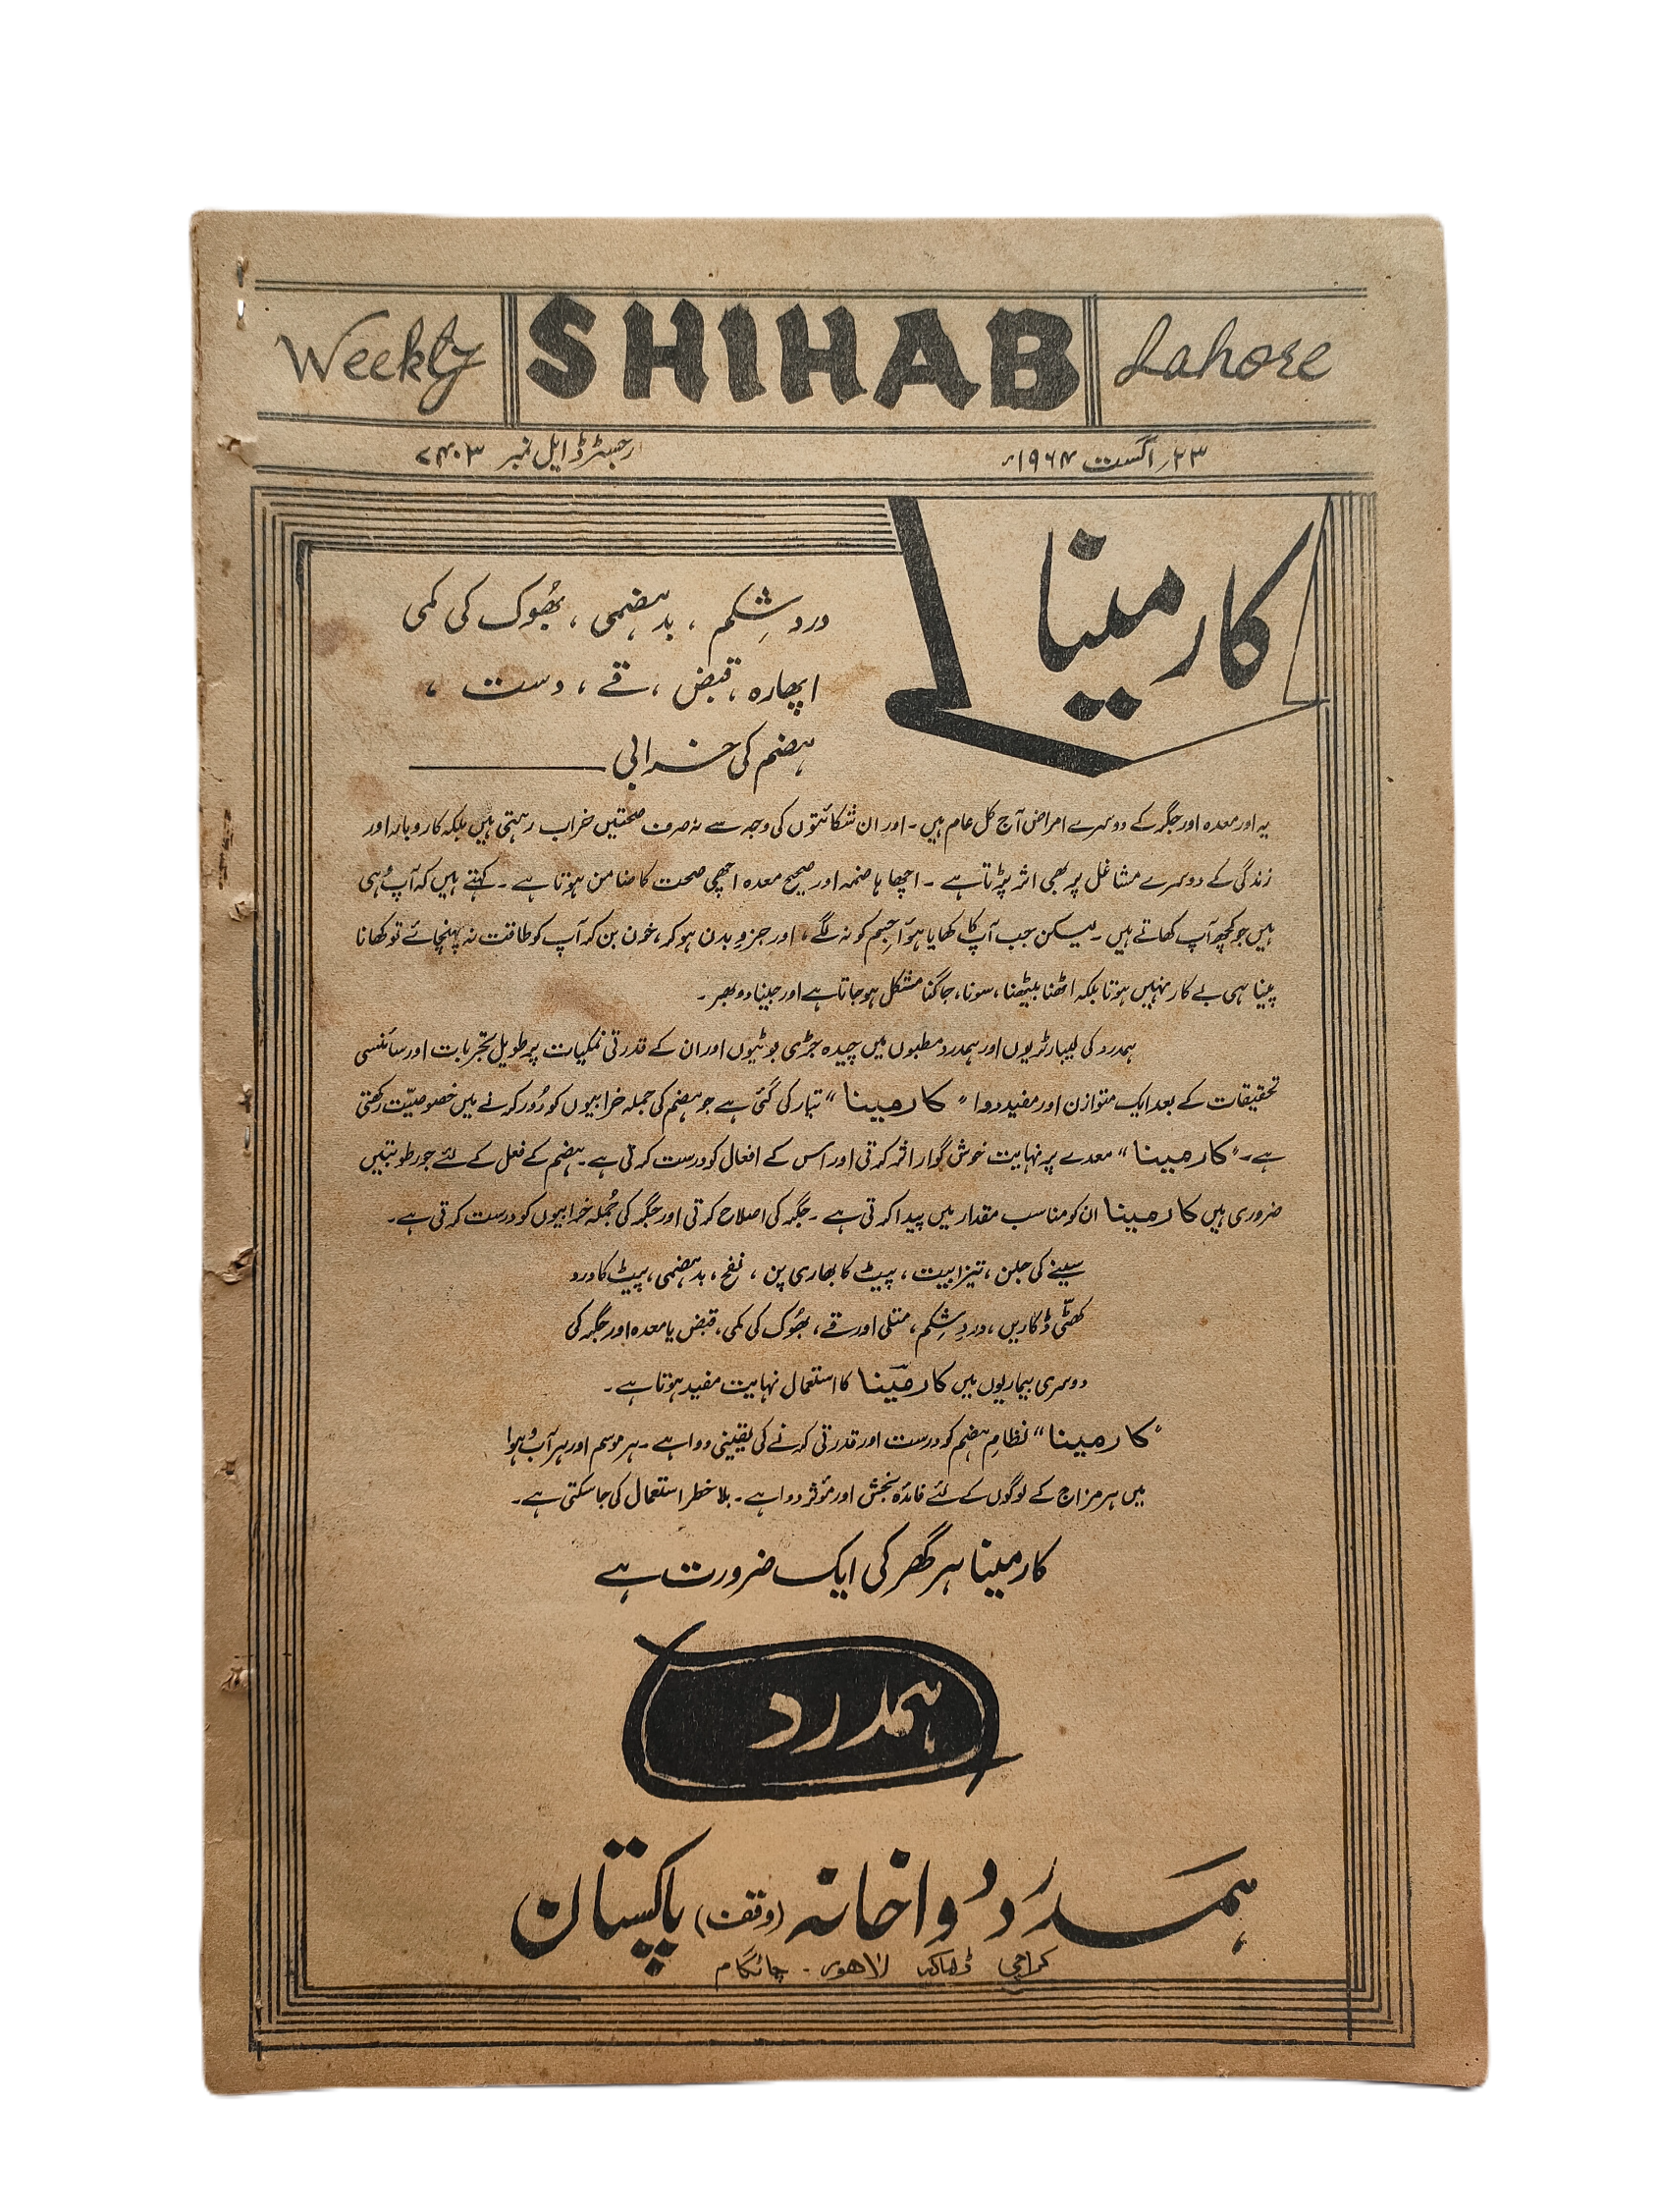 Weekly SHIHAB Lahore
۲۳؍ اگست ۱۹۶۴ء رجسٹرڈ ایل نمبر ۷۴۰۳
کارمینا
درد شِکم ، بدہضمی ، بھُوک کی کمی
اپھارہ ، قبض ، قے ، دست ،
ہضم کی خرابی
یہ اور معدہ اور جگر کے دوسرے امراض آج کل عام ہیں ۔ اور ان شکائتوں کی وجہ سے نہ صرف صحتیں خراب رہتی ہیں بلکہ کاروبار اور
زندگی کے دوسرے مشاغل پر بھی اثر پڑتا ہے ۔ اچھا ہاضمہ اور صحیح معدہ اچھی صحت کا ضامن ہوتا ہے ۔ کہتے ہیں کہ آپ وُہی
ہیں جو کچھ آپ کھاتے ہیں ۔ لیکن جب آپ کا کھایا ہوُا جسم کو نہ لگے ، اور جزوِ بدن ہو کر، خون بن کر آپ کو طاقت نہ پہنچائے تو کھانا
پینا ہی بے کار نہیں ہوتا بلکہ اٹھنا بیٹھنا ، سونا ، جاگنا مشکل ہو جاتا ہے اور جینا دوبھر ۔
ہمدرد کی لیبارٹریوں اور ہمدرد مطبوں میں چیدہ جڑی بوٹیوں اور ان کے قدرتی نمکیات پر طویل تجربات اور سائنسی
تحقیقات کے بعد ایک متوازن اور مفید دوا "کارمینا" تیار کی گئی ہے جو ہضم کی جملہ خرابیوں کو دُور کرنے میں خصوصیّت رکھتی
ہے ۔ "کارمینا" معدے پر نہایت خوش گوار اثر کرتی اور اس کے افعال کو درست کرتی ہے ۔ ہضم کے فعل کے لئے جو رطوبتیں
ضروری ہیں کارمینا ان کو مناسب مقدار میں پیدا کرتی ہے ۔ جگر کی اصلاح کرتی اور جگر کی جُملہ خرابیوں کو درست کرتی ہے ۔
سینے کی جلن ، تیزابیت ، پیٹ کا بھاری پن ، نفخ ، بدہضمی ، پیٹ کا درد
کھٹّی ڈکاریں ، دردِ شِکم ، متلی اور قے ، بھُوک کی کمی ، قبض یا معدہ اور جگر کی
دوسری بیماریوں میں کارمینا کا استعمال نہایت مفید ہوتا ہے ۔
"کارمینا" نظامِ ہضم کو درست اور قدرتی کرنے کی یقینی دوا ہے ۔ ہر موسم اور ہر آب و ہوا
میں ہر مزاج کے لوگوں کے لئے فائدہ بخش اور مؤثر دوا ہے ۔ بلا خطر استعمال کی جا سکتی ہے ۔
کارمینا ہر گھر کی ایک ضرورت ہے
ہمدرد
ہمدرد دواخانہ (وقف) پاکستان
کراچی ڈھاکہ لاھور - چاٹگام